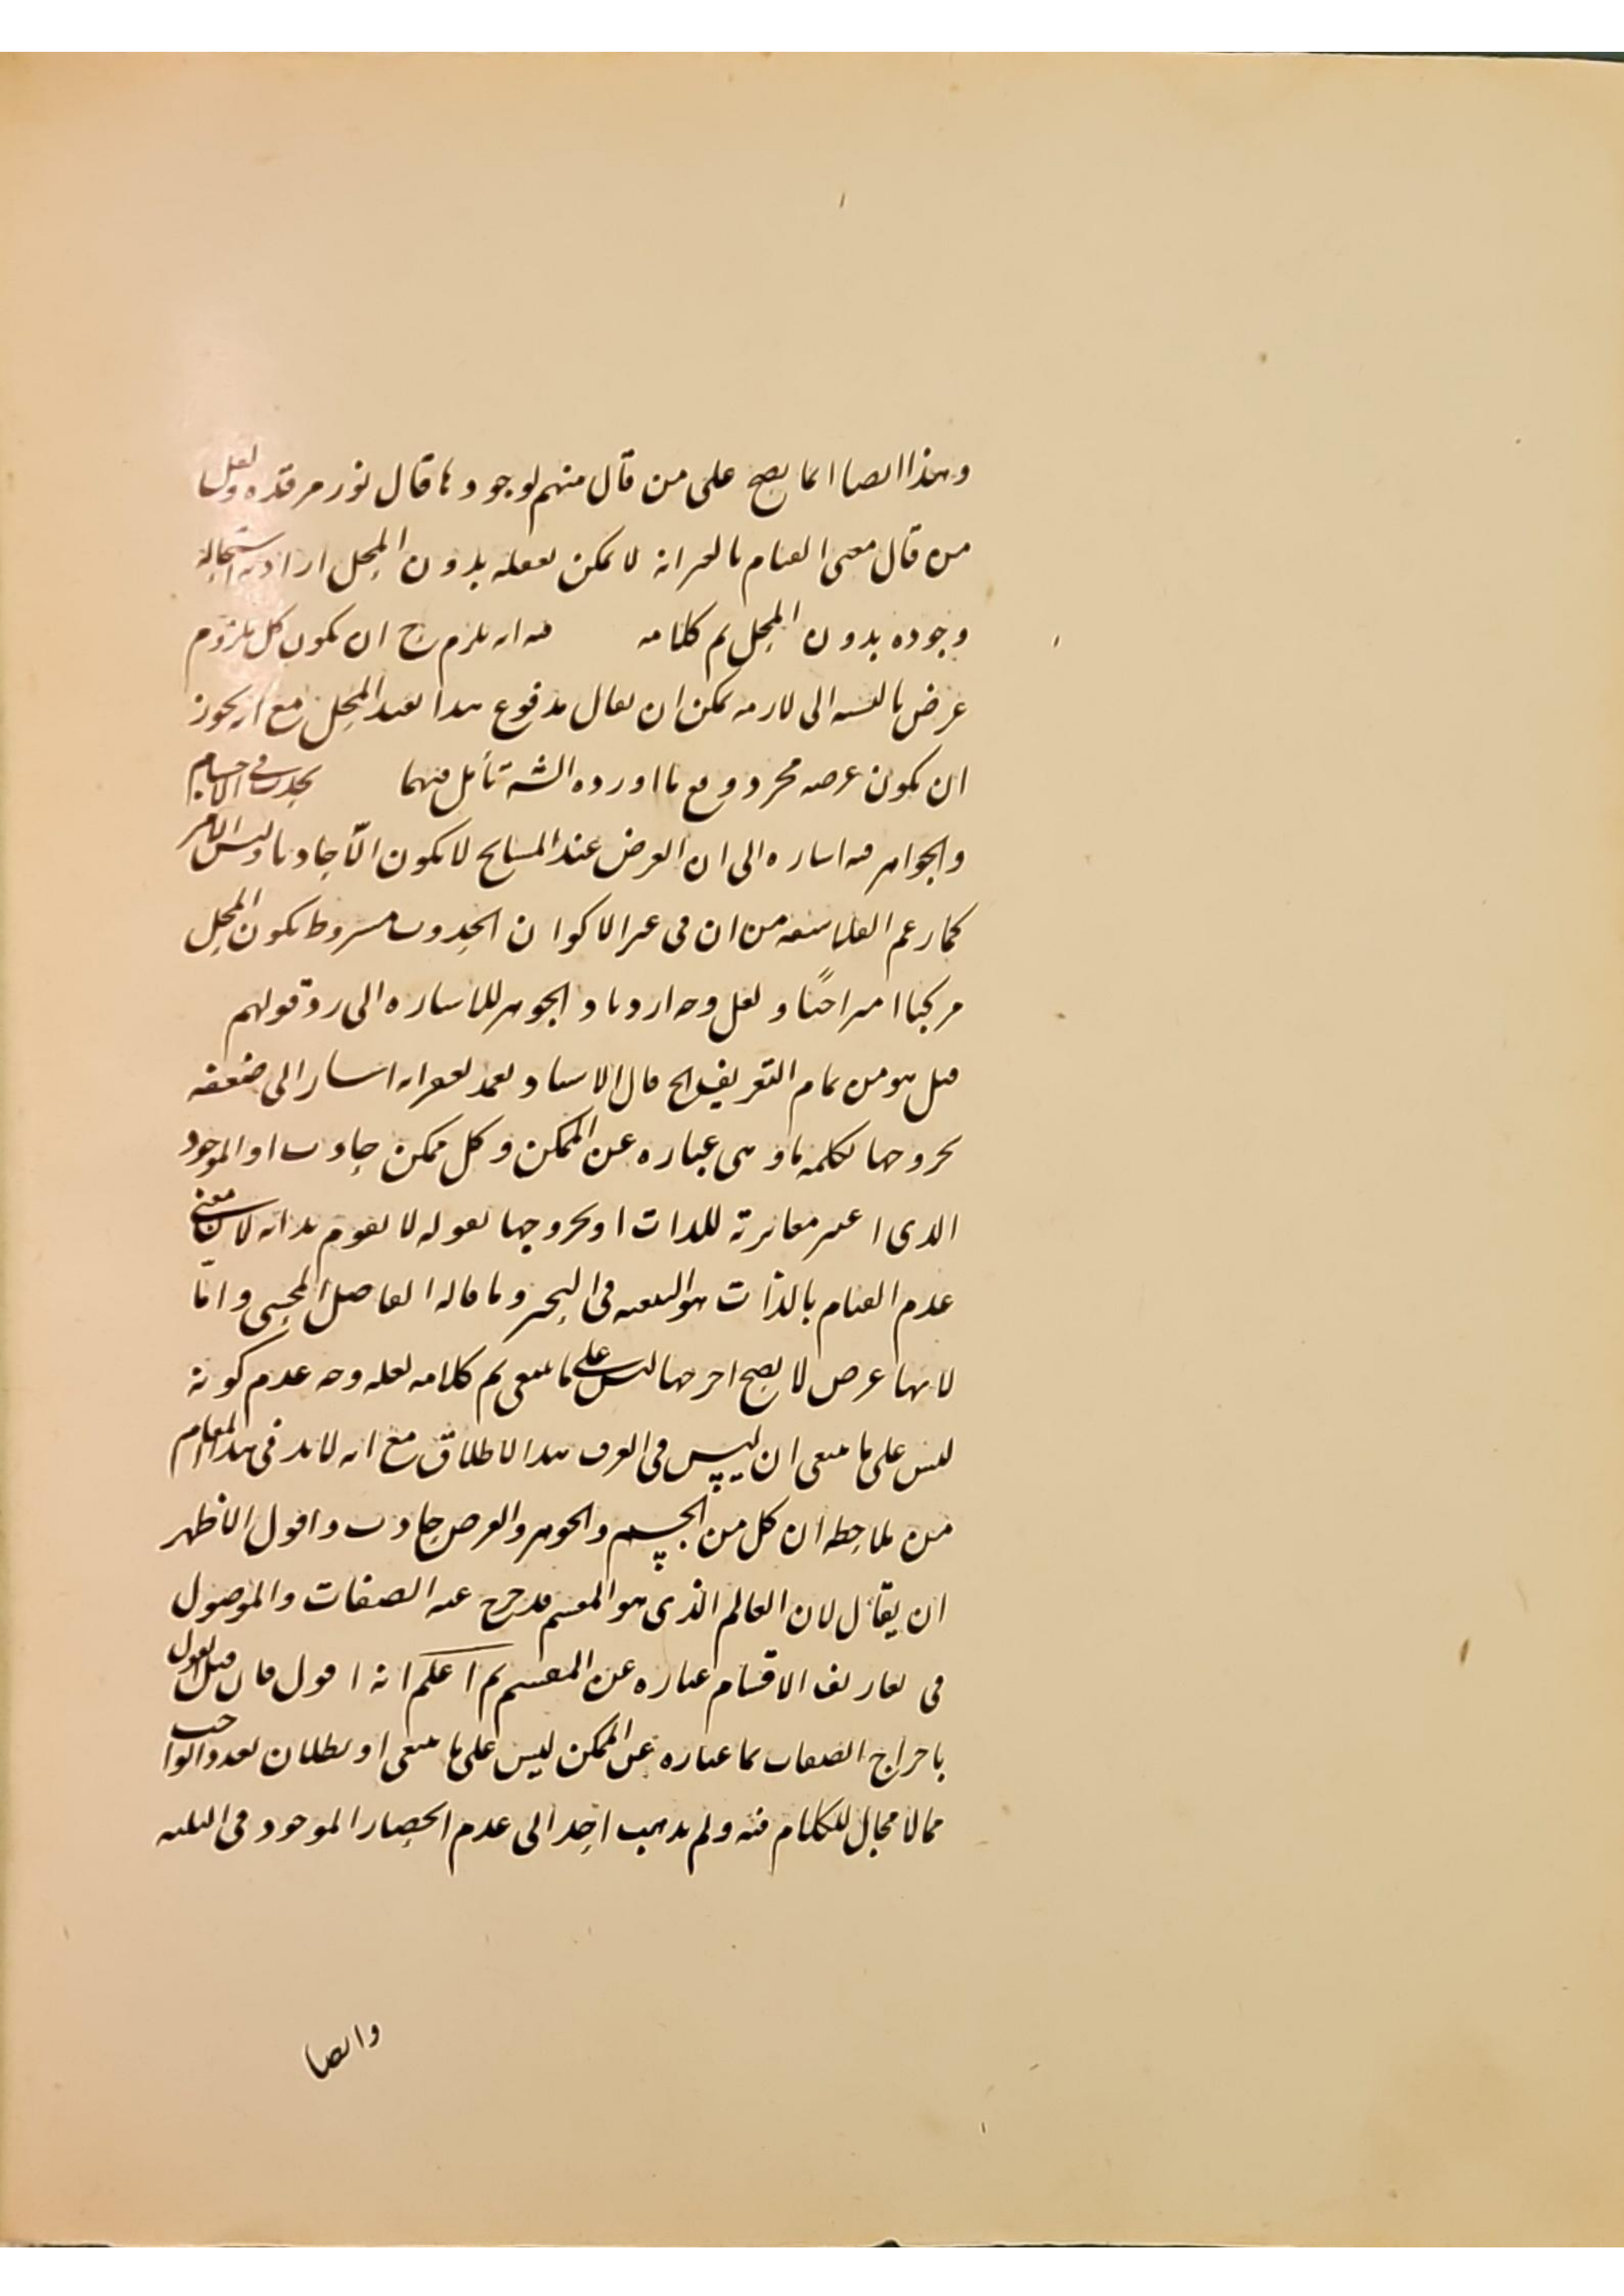 وهذا ايضا انما يصح على من قال منهم بوجودها قال نور مرقده ولعل
من قال معنى القيام بالغير انه لا يمكن تعقله بدون المحل اراد به استحالة
وجوده بدون المحل تم كلامه فيه انه يلزم ح ان يكون كل ملزوم
عرض بالنسبة الى لازمه يمكن ان يقال مدفوع هذا بقيد المحل مع انه يجوز
ان يكون غرضه مجرد دفع ما اورده الشه تأمل فيهما يحدث في الاجسام
والجواهر فيه اشاره الى ان العرض عند المشايخ لا يكون الّا حادثا وليس الامر
كما زعم الفلاسفه من ان في غير الاكوان الحدوث مشروط بكون المحل
مركبا امتزاجيًا ولعل وجه ازدياد الجوهر للاشاره الى رد قولهم
قيل هو من تمام التعريف الخ قال الاستاد تعمد بغفرانه اشار الى ضعفه
بخروجها بكلمه ما وهى عباره عن الممكن وكل ممكن حادث او الموجود
الذى اعتبر مغايرته للذات او بخروجها بقوله لا يقوم بذاته لان معنى
عدم القيام بالذات هو التبعيه فى التحيز وما قاله الفاضل المحشى وامّا
لانها عرض لا يصح اخرجها ليس على ما ينبغى تم كلامه لعله وجه عدم كونه
ليس على ما ينبغى ان ليس فى العرف هذا الاطلاق مع انه لا بد فى هذا المقام
من ملاحظه ان كل من الجسم والجوهر والعرض حادث واقول الاظهر
ان يقال لان العالم الذى هو المقسم قد خرج عنه الصفات والموصول
فى تعاريف الاقسام عباره عن المقسم ثم اعلم انه اقول فان قيل القول
باخراج الصفات بما عباره عن الممكن ليس على ما ينبغى او بطلان تعدد الواجب
مما لا مجال للكلام فيه ولم يذهب احد الى عدم انحصار الموجود فى الثلثه
وايضا